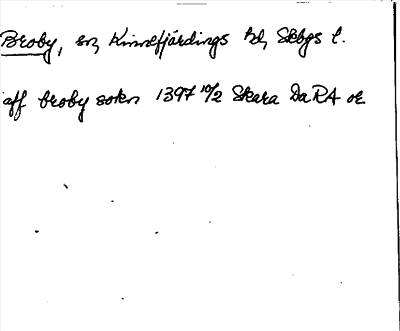 Broby, sn, Kinnefjärdings hd, Skbgs l.
aff broby sokn 1397 10/2 Skara DaRA or